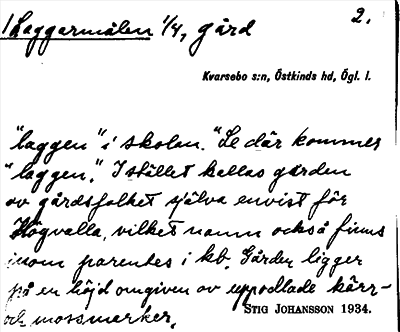 Laggarmålen 1/4, gård 2.
Kvarsebo s:n, Östkinds hd, Ögl. l.
"laggen" i skolan. "Se där kommer
"laggen." I stället kallas gården
av gårdsfolket själva envist för
Högvalla, vilket namn också finns
inom parentes i kb. Gården ligger
på en höjd omgiven av uppodlade kärr-
och mossmarker.
STIG JOHANSSON 1934.